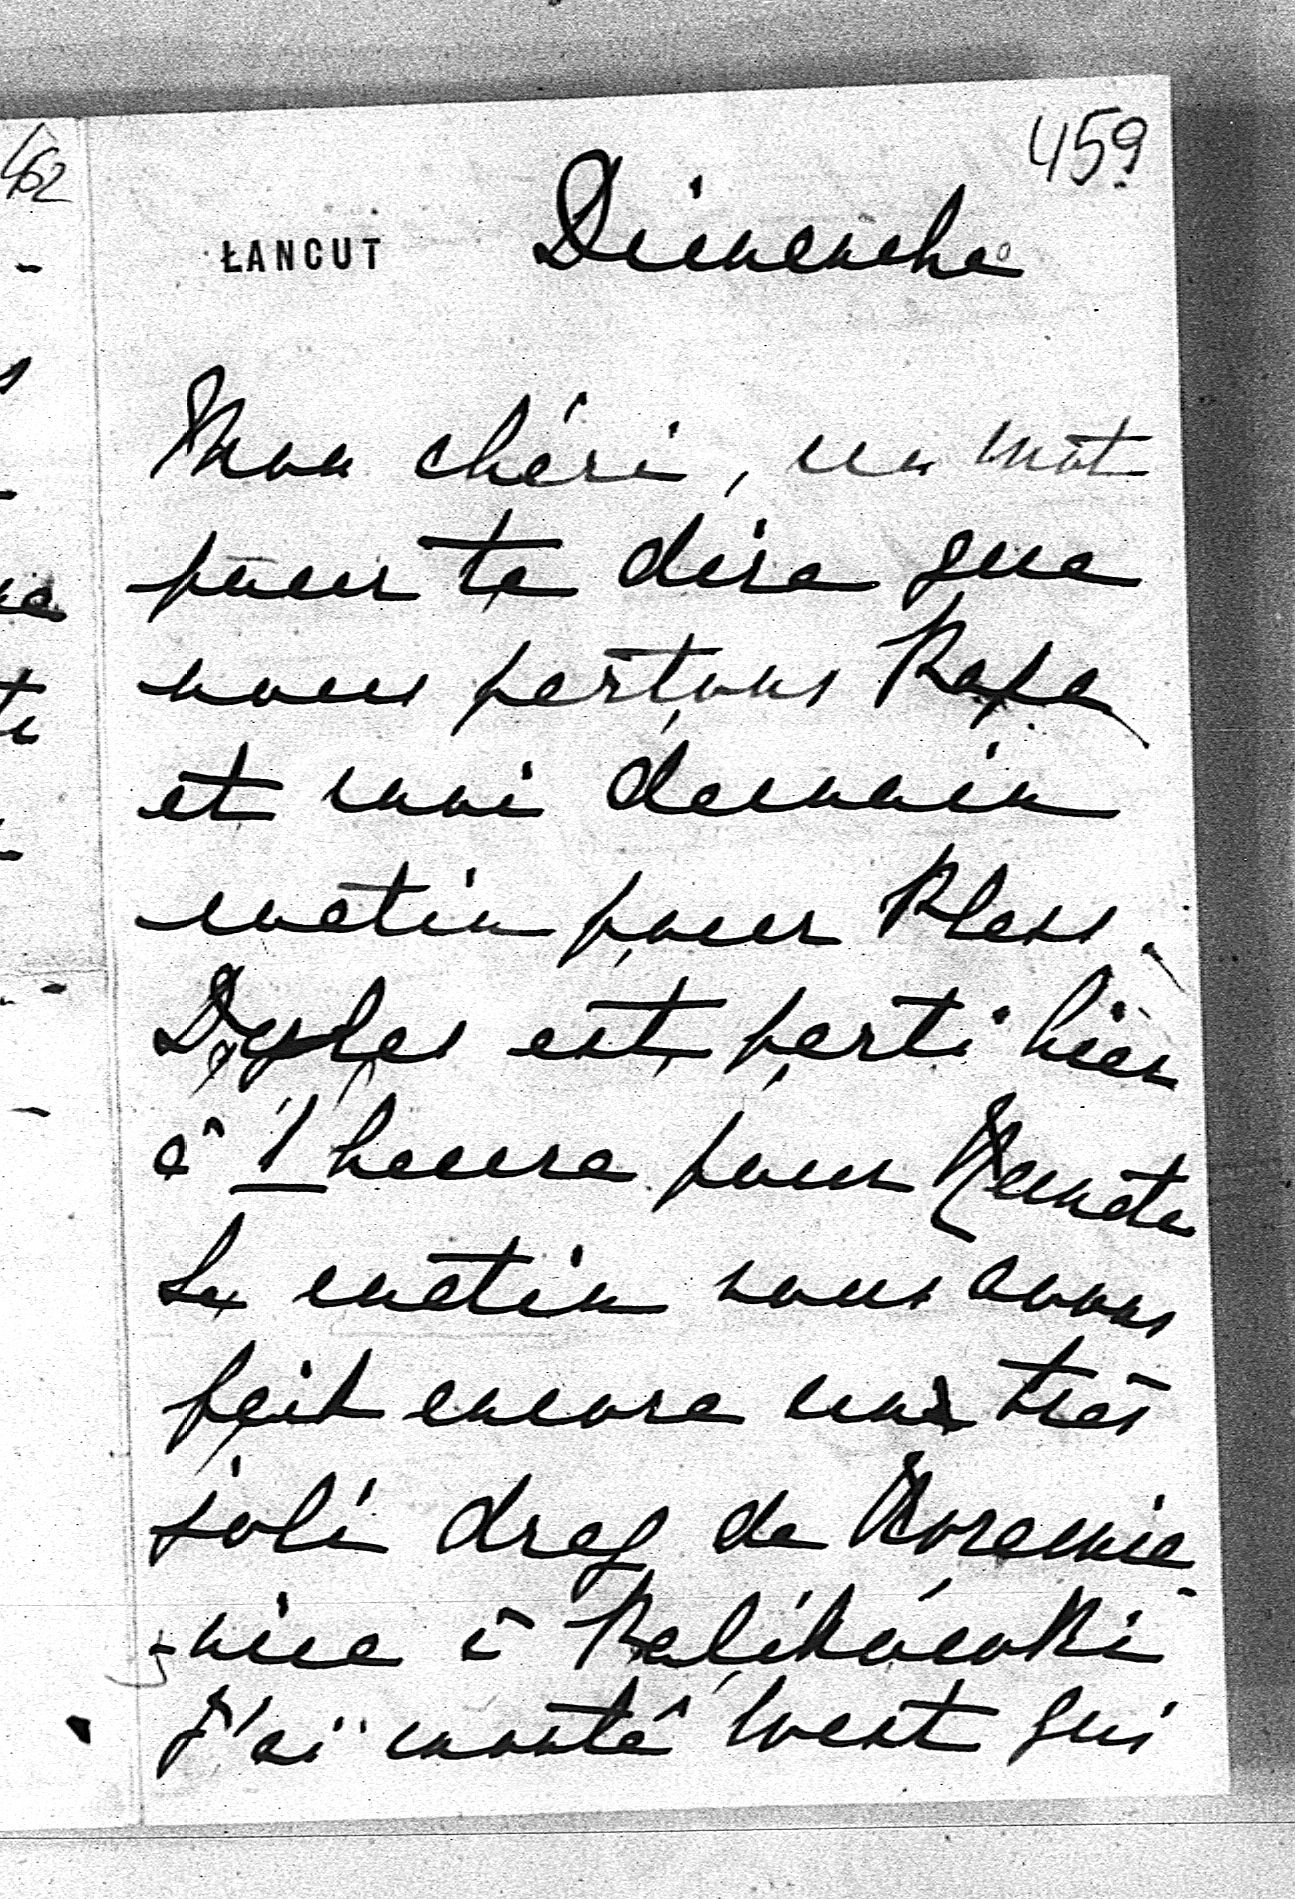 462
459
ŁANCUT Dimanche
Mon chéri, un mot
pour te dire que
nous partons Papa
et moi demain
matin pour Pless.
est parti hier
à 1 heure pour
Le matin nous avons
fait encore un très
joli drag de Koremie-
-nice à Rakikówki
J'ai monté West qui